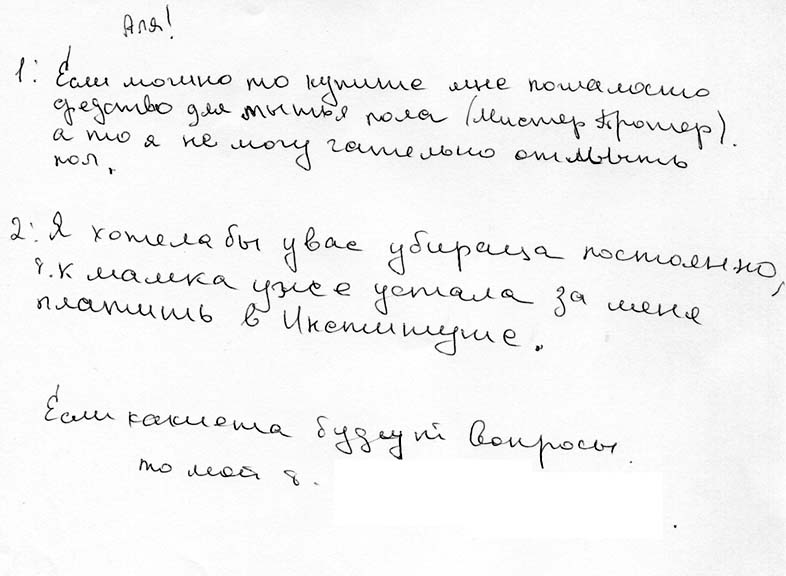 Аля!
1: Если можно то купите мне пожалосто
средство для мытья пола (Мистер Протер).
а то я не могу чательно отмыть
пол.
2: Я хотела бы увас убираца постоянно,
т.к мамка уже устала за меня
платить в Институте.
Если какиета будут вопросы
то мой т.